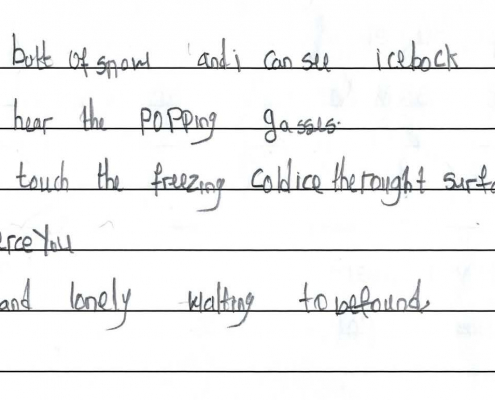 butt of snowl and i can see icebock
hear the POPPing gasses.
touch the freezing coldice therought surfa
erce You
and lonely waiting tobefound.